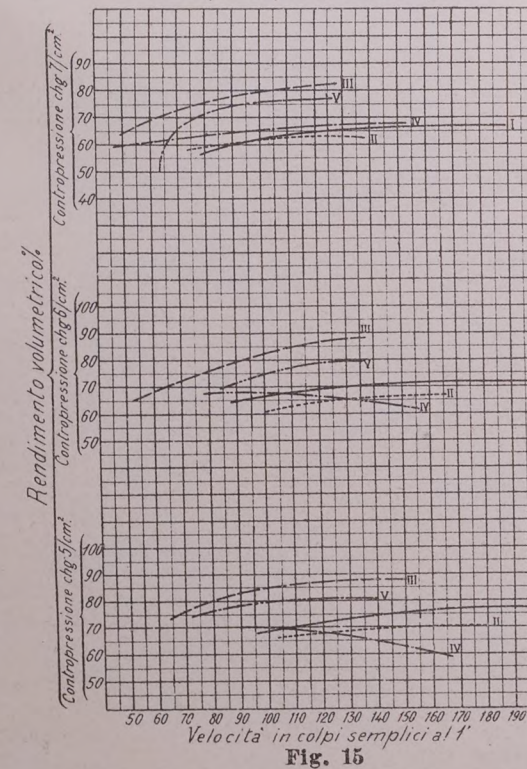 Rendimento volumetrico%
Contropressione chg·7/cm.²
90
80
70
60
50
40
III
V
IV
I
II
Contropressione chg·6/cm.²
100
90
80
70
60
50
III
V
II
IV
Contropressione chg·5/cm.²
100
90
80
70
60
50
III
V
II
IV
50 60 70 80 90 100 110 120 130 140 150 160 170 180 190
Velocità in colpi semplici al 1'
Fig. 15